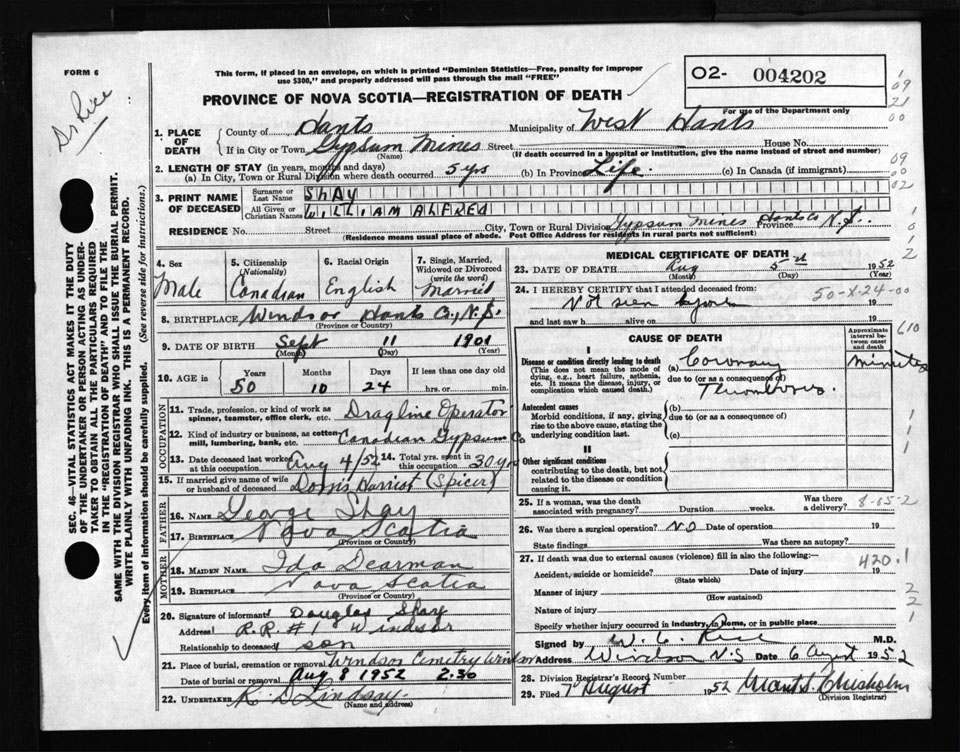 FORM 6
Dr Rice
This form, if placed in an envelope, on which is printed "Dominion Statistics—Free, penalty for improper
use $300," and properly addressed will pass through the mail "FREE"
O2- 004202
For use of the Department only
PROVINCE OF NOVA SCOTIA—REGISTRATION OF DEATH
1. PLACE OF DEATH
County of Hants Municipality of West Hants
If in City or Town Gypsum Mines Street House No.
(Name) (If death occurred in a hospital or institution, give the name instead of street and number)
2. LENGTH OF STAY (in years, months and days)
(a) In City, Town or Rural Division where death occurred 5 yrs (b) In Province Life. (c) In Canada (if immigrant)
3. PRINT NAME OF DECEASED
Surname or Last Name SHAY
All Given or Christian Names WILLIAM ALFRED
RESIDENCE No. Street City, Town or Rural Division Gypsum Mines Hants Co Province N.S.
(Residence means usual place of abode. Post Office Address for residents in rural parts not sufficient)
SEC. 46—VITAL STATISTICS ACT MAKES IT THE DUTY
OF THE UNDERTAKER OR PERSON ACTING AS UNDER-
TAKER TO OBTAIN ALL THE PARTICULARS REQUIRED
IN THE "REGISTRATION OF DEATH" AND TO FILE THE
SAME WITH THE DIVISION REGISTRAR WHO SHALL ISSUE THE BURIAL PERMIT.
WRITE PLAINLY WITH UNFADING INK. THIS IS A PERMANENT RECORD.
Every item of information should be carefully supplied. (See reverse side for instructions.)
4. Sex Male
5. Citizenship (Nationality) Canadian
6. Racial Origin English
7. Single, Married, Widowed or Divorced (write the word) Married
8. BIRTHPLACE Windsor Hants Co., N.S.
(Province or Country)
9. DATE OF BIRTH Sept 11 1901
(Month) (Day) (Year)
10. AGE in Years Months Days If less than one day old
50 10 24 hrs. or min.
OCCUPATION
11. Trade, profession, or kind of work as spinner, teamster, office clerk, etc. Dragline Operator
12. Kind of industry or business, as cotten-mill, lumbering, bank, etc. Canadian Gypsum Co
13. Date deceased last worked at this occupation Aug 4/52 14. Total yrs. spent in this occupation 30 yrs
15. If married give name of wife or husband of deceased Dorris Harriot (Spicer)
FATHER
16. NAME George Shay
17. BIRTHPLACE Nova Scotia
(Province or Country)
MOTHER
18. MAIDEN NAME Ida Dearman
19. BIRTHPLACE Nova Scotia
(Province or Country)
20. Signature of informant Douglas Shay
Address R.R.#1 Windsor
Relationship to deceased son
21. Place of burial, cremation or removal Windsor Cemetry Windsor
Date of burial or removal Aug 8 1952 2.30
22. UNDERTAKER K D Lindsay.
(Name and address)
MEDICAL CERTIFICATE OF DEATH
23. DATE OF DEATH Aug 5th 1952
(Month) (Day) (Year)
24. I HEREBY CERTIFY that I attended deceased from:
Not seen 19
and last saw h alive on 19
50-X-24-00
CAUSE OF DEATH
Approximate interval between onset and death
I
Disease or condition directly leading to death (a) Coronary minutes
(This does not mean the mode of dying, e.g., heart failure, asthenia, etc. It means the disease, injury, or complication which caused death.)
due to (or as a consequence of) Thrombosis.
Antecedent causes
Morbid conditions, if any, giving rise to the above cause, stating the underlying condition last.
(b)
due to (or as a consequence of)
(c)
II
Other significant conditions
contributing to the death, but not related to the disease or condition causing it.
25. If a woman, was the death associated with pregnancy? Duration weeks. Was there a delivery?
8-05-2
26. Was there a surgical operation? NO Date of operation 19
State findings Was there an autopsy?
27. If death was due to external causes (violence) fill in also the following:—
420.1
Accident, suicide or homicide? Date of injury 19
(State which)
Manner of injury
(How sustained)
Nature of injury
Specify whether injury occurred in Industry, in Home, or in public place
Signed by W. C. Rice M.D.
Address Windsor N.S Date 6 August 1952
28. Division Registrar's Record Number
29. Filed 7 August 1952 Chisholm
(Division Registrar)